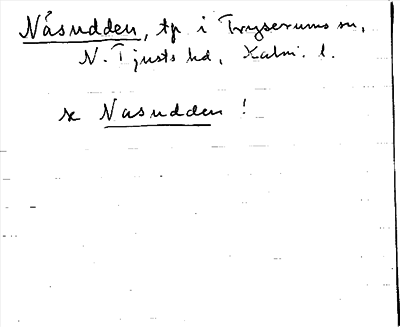 Nåsudden, tp i Tryserums sn,
N. Tjusts hd, Kalm. l.
se Nasudden !